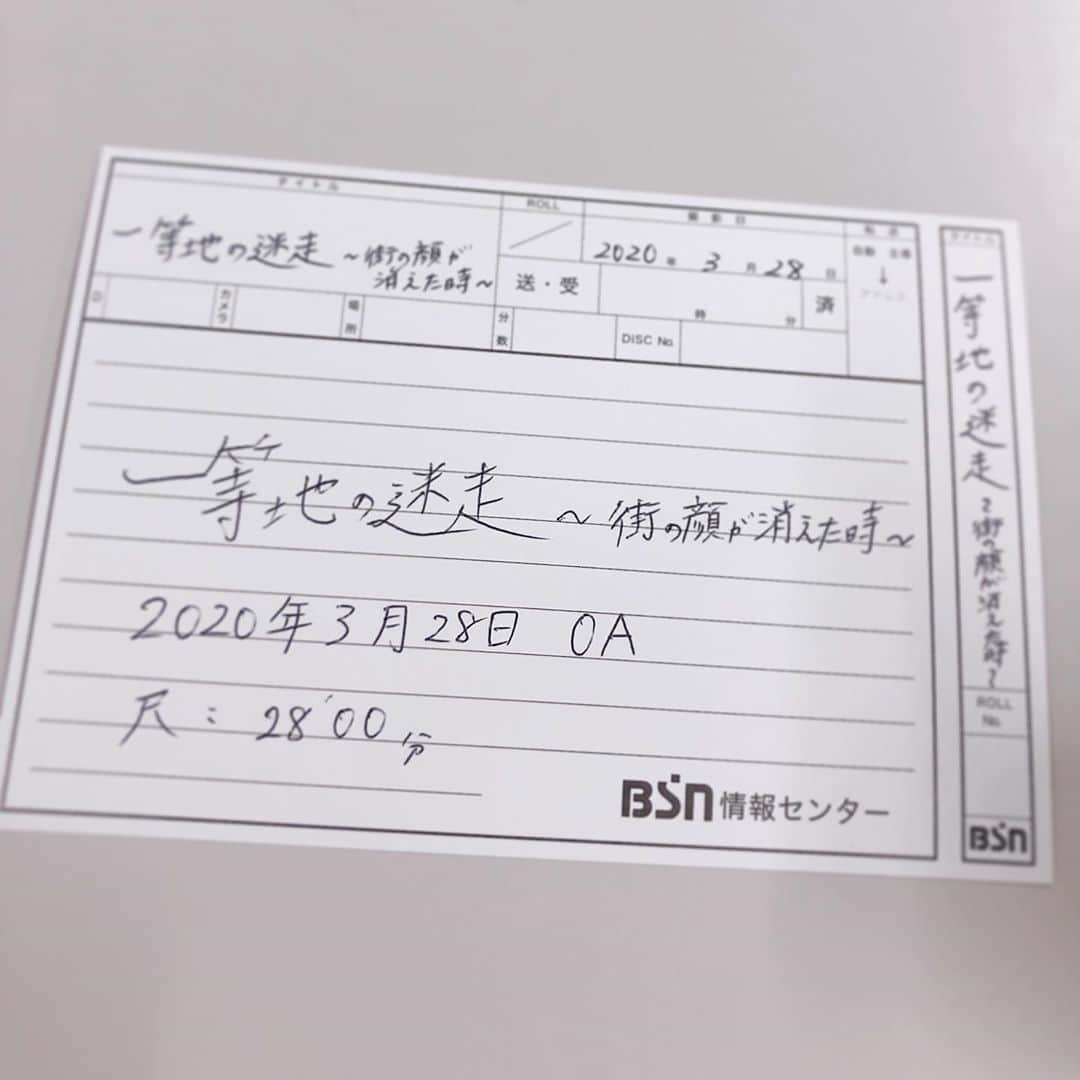 タイトル
一等地の迷走 ~街の顔が
消えた時~
ROLL
撮影日
2020年 3月 28日
転送
自動 主導
↓
アドレス
送・受
時 分
済
D
カメラ
場所
分数
DISC No.
一等地の迷走 ~街の顔が消えた時~
2020年3月28日 OA
尺: 28'00分
BSN 情報センター
タイトル
一等地の迷走~街の顔が消えた時~
ROLL
No.
BSN